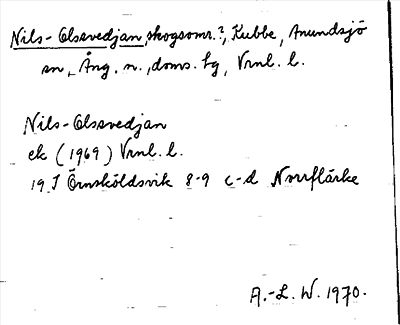 Nils-Olssvedjan, skogsomr.?, Kubbe, Anundsjö
sn, Ång. n., doms. bg, Vrnl. l.
Nils-Olssvedjan
ek (1969) Vrnl. l.
19 I Örnsköldsvik 8-9 c-d Norrflärke
A.-L. W. 1970.